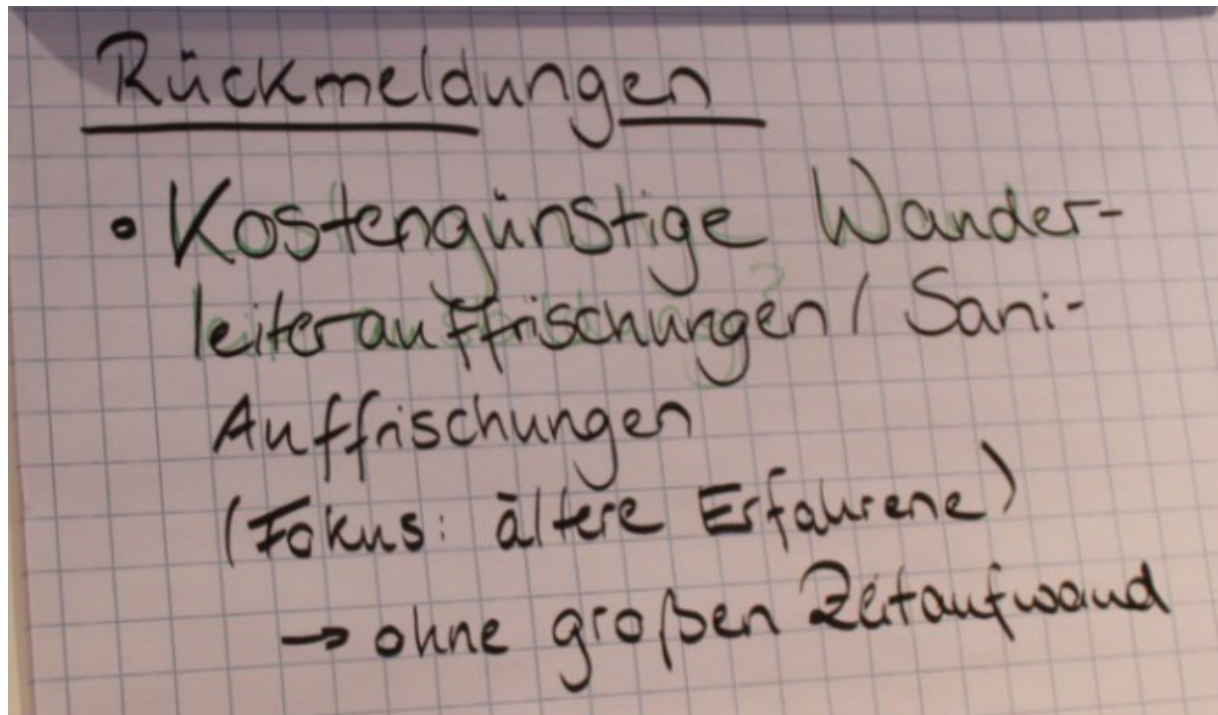 Rückmeldungen
• Kostengünstige Wander-
leiterauffrischungen / Sani-
Auffrischungen
(Fokus: ältere Erfahrene)
→ ohne großen Zeitaufwand